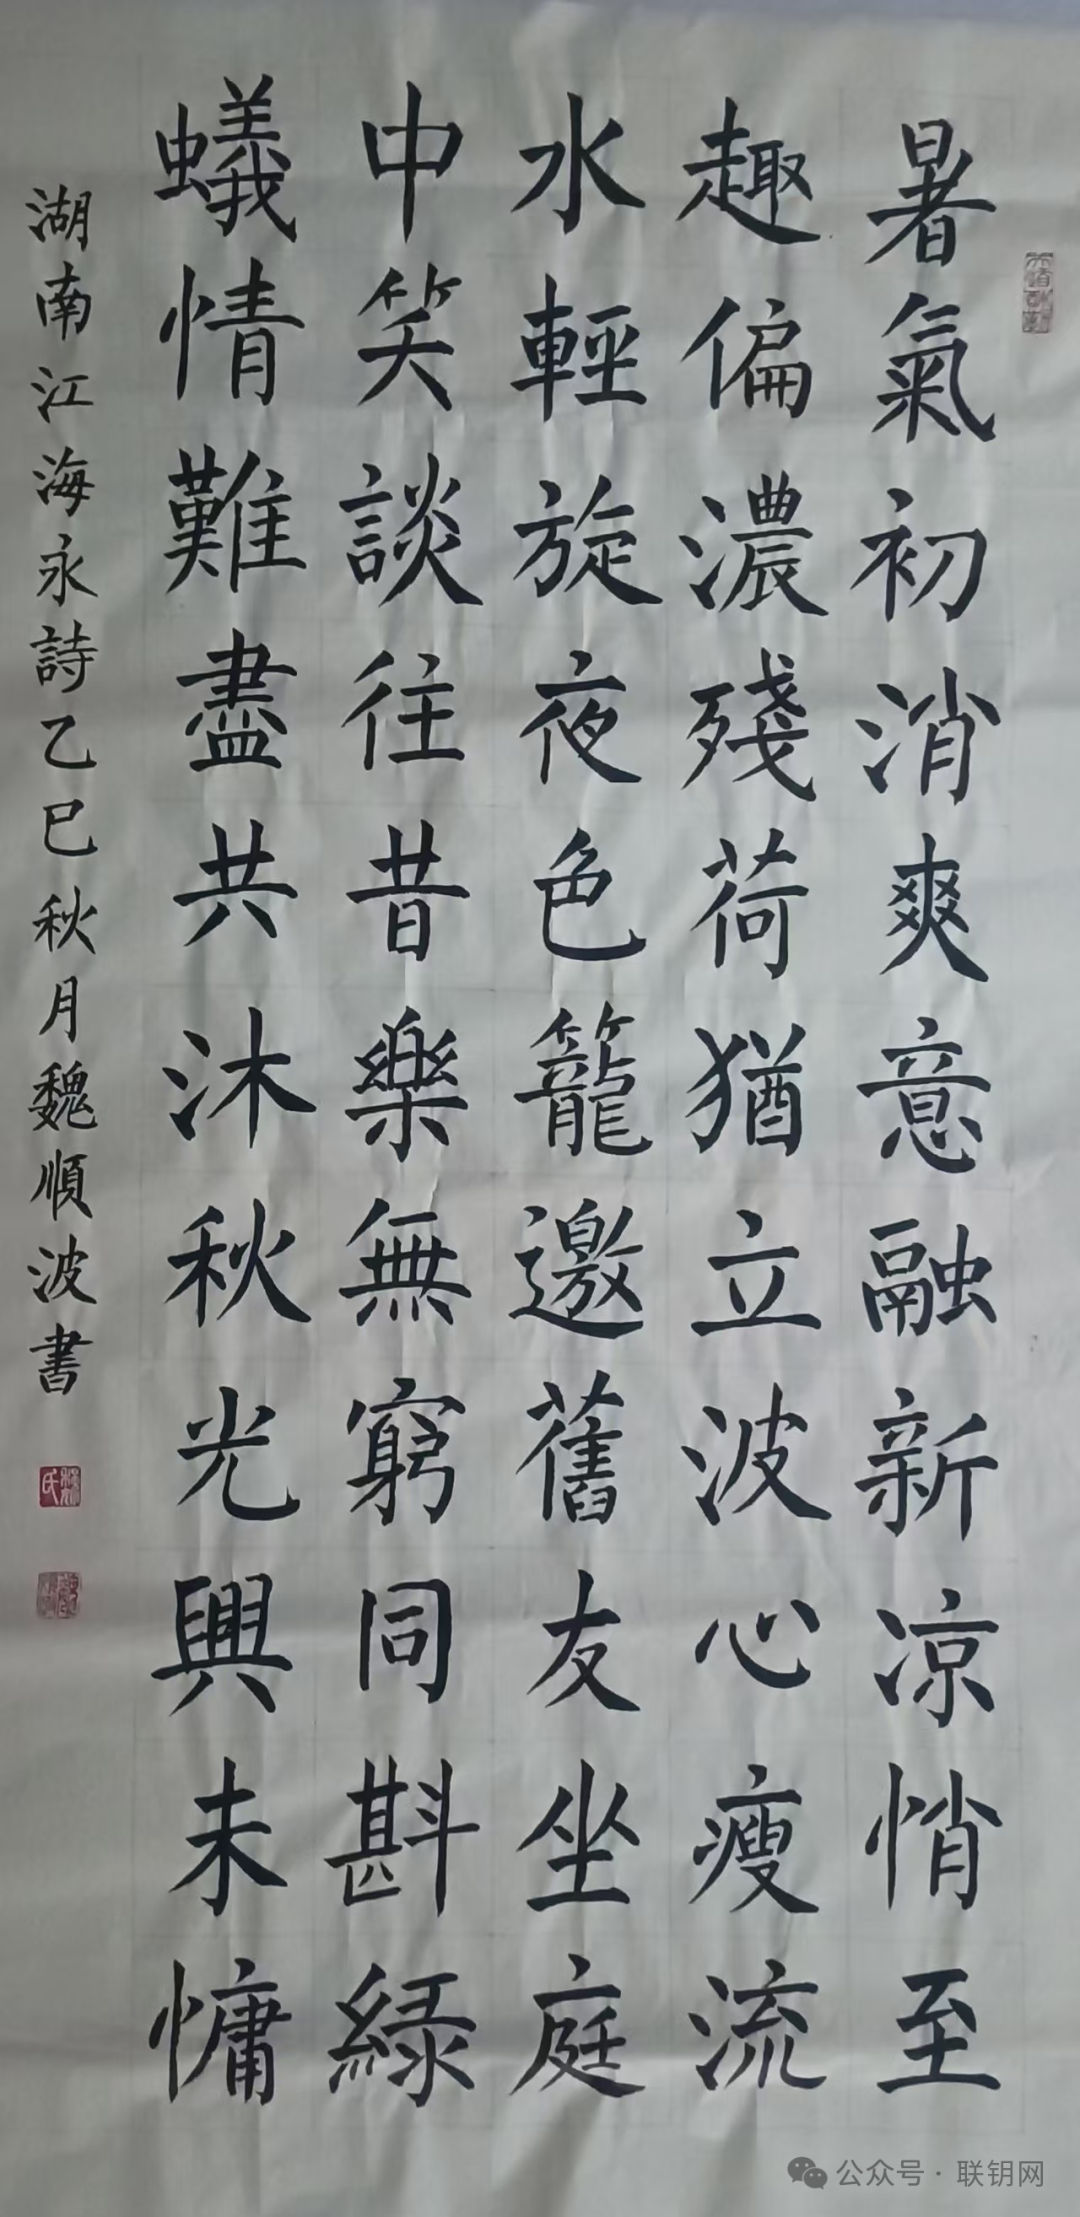 暑氣初消爽意融新凉悄至
趣偏濃殘荷猶立波心瘦流
水輕旋夜色籠邀舊友坐庭
中笑談往昔樂無窮同斟綠
蟻情難盡共沐秋光興未慵
湖南江海永詩乙巳秋月魏順波書
魏氏
公众号·联钥网